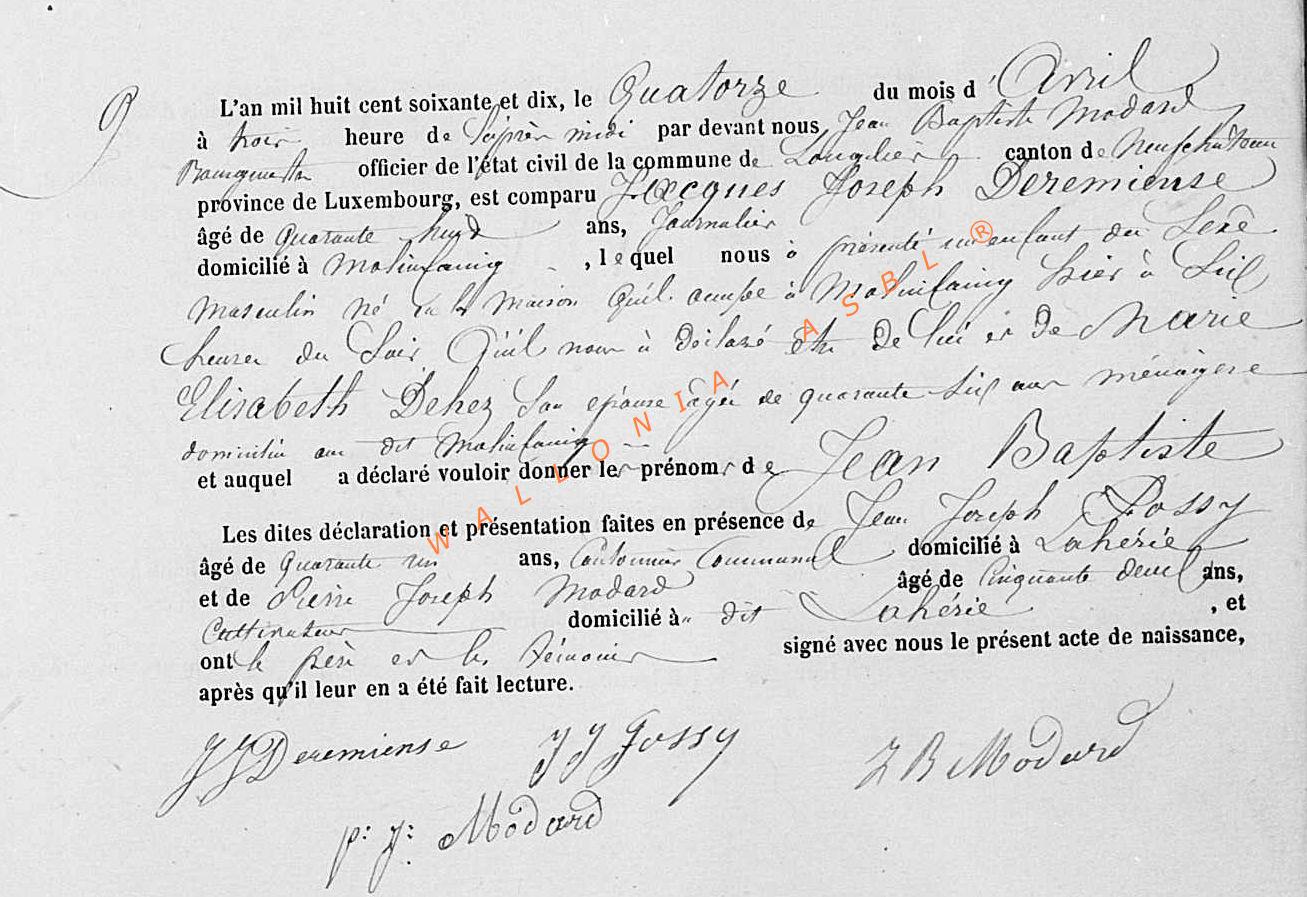 9
L'an mil huit cent soixante et dix, le Quatorze du mois d'Avril
à trois heure de l'après midi par devant nous, Jean Baptiste Modard
Bourgmestre officier de l'état civil de la commune de Longlier canton de Neufchateau
province de Luxembourg, est comparu Jacques Joseph Deremiense
âgé de quarante huit ans, Journalier
domicilié à Molinfaing , lequel nous à présenté un enfant du Sexe
masculin né en la maison qu'il occupe à Molinfaing hier à Six
heures du Soir Qu'il nous à déclaré être de lui et de Marie
Elisabeth Dehez Son épouse agée de quarante Six ans ménagere
domiciliée au dit Molinfaing
et auquel a déclaré vouloir donner les prénoms de Jean Baptiste
Les dites déclaration et présentation faites en présence de Jean Joseph Gossy
âgé de Quarante un ans, Cantonnier Communal domicilié à Lahérie
et de Pierre Joseph Modard âgé de Cinquante deux ans,
Cultivateur domicilié à dit Lahérie , et
ont le père et les témoins signé avec nous le présent acte de naissance,
après qu'il leur en a été fait lecture.
JJ Deremiense JJ Gossy J B Modard
p: j: Modard
WALLONIA ASBL ®